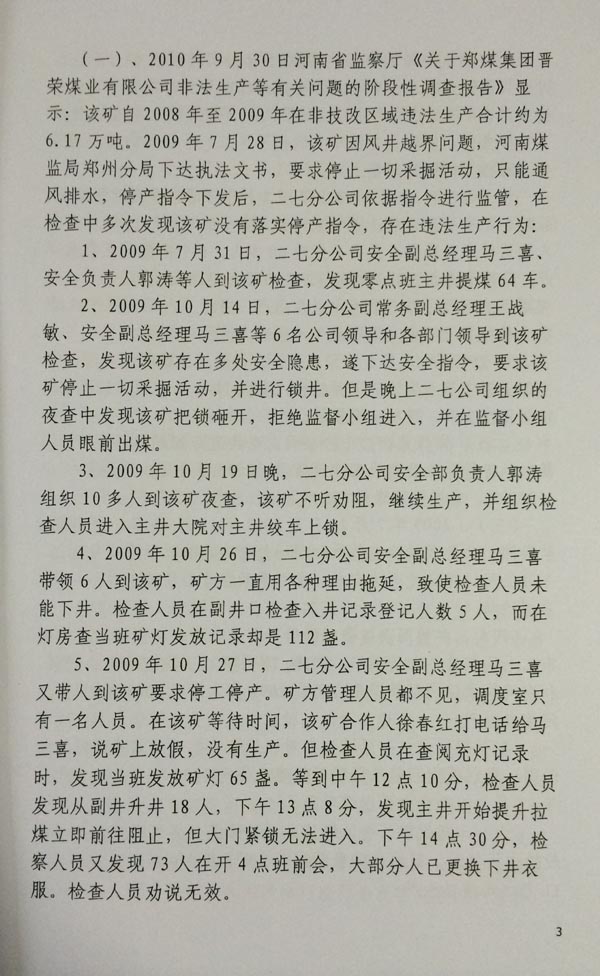 （一）、2010年9月30日河南省监察厅《关于郑煤集团晋
荣煤业有限公司非法生产等有关问题的阶段性调查报告》显
示：该矿自2008年至2009年在非技改区域违法生产合计约为
6.17万吨。2009年7月28日，该矿因风井越界问题，河南煤
监局郑州分局下达执法文书，要求停止一切采掘活动，只能通
风排水，停产指令下发后，二七分公司依据指令进行监管，在
检查中多次发现该矿没有落实停产指令，存在违法生产行为：
1、2009年7月31日，二七分公司安全副总经理马三喜、
安全负责人郭涛等人到该矿检查，发现零点班主井提煤64车。
2、2009年10月14日，二七分公司常务副总经理王战
敏、安全副总经理马三喜等6名公司领导和各部门领导到该矿
检查，发现该矿存在多处安全隐患，遂下达安全指令，要求该
矿停止一切采掘活动，并进行锁井。但是晚上二七公司组织的
夜查中发现该矿把锁砸开，拒绝监督小组进入，并在监督小组
人员眼前出煤。
3、2009年10月19日晚，二七分公司安全部负责人郭涛
组织10多人到该矿夜查，该矿不听劝阻，继续生产，并组织检
查人员进入主井大院对主井绞车上锁。
4、2009年10月26日，二七分公司安全副总经理马三喜
带领6人到该矿，矿方一直用各种理由拖延，致使检查人员未
能下井。检查人员在副井口检查入井记录登记人数5人，而在
灯房查当班矿灯发放记录却是112盏。
5、2009年10月27日，二七分公司安全副总经理马三喜
又带人到该矿要求停工停产。矿方管理人员都不见，调度室只
有一名人员。在该矿等待时间，该矿合作人徐春红打电话给马
三喜，说矿上放假，没有生产。但检查人员在查阅充灯记录
时，发现当班发放矿灯65盏。等到中午12点10分，检查人员
发现从副井升井18人，下午13点8分，发现主井开始提升拉
煤立即前往阻止，但大门紧锁无法进入。下午14点30分，检
察人员又发现73人在开4点班前会，大部分人已更换下井衣
服。检查人员劝说无效。
3